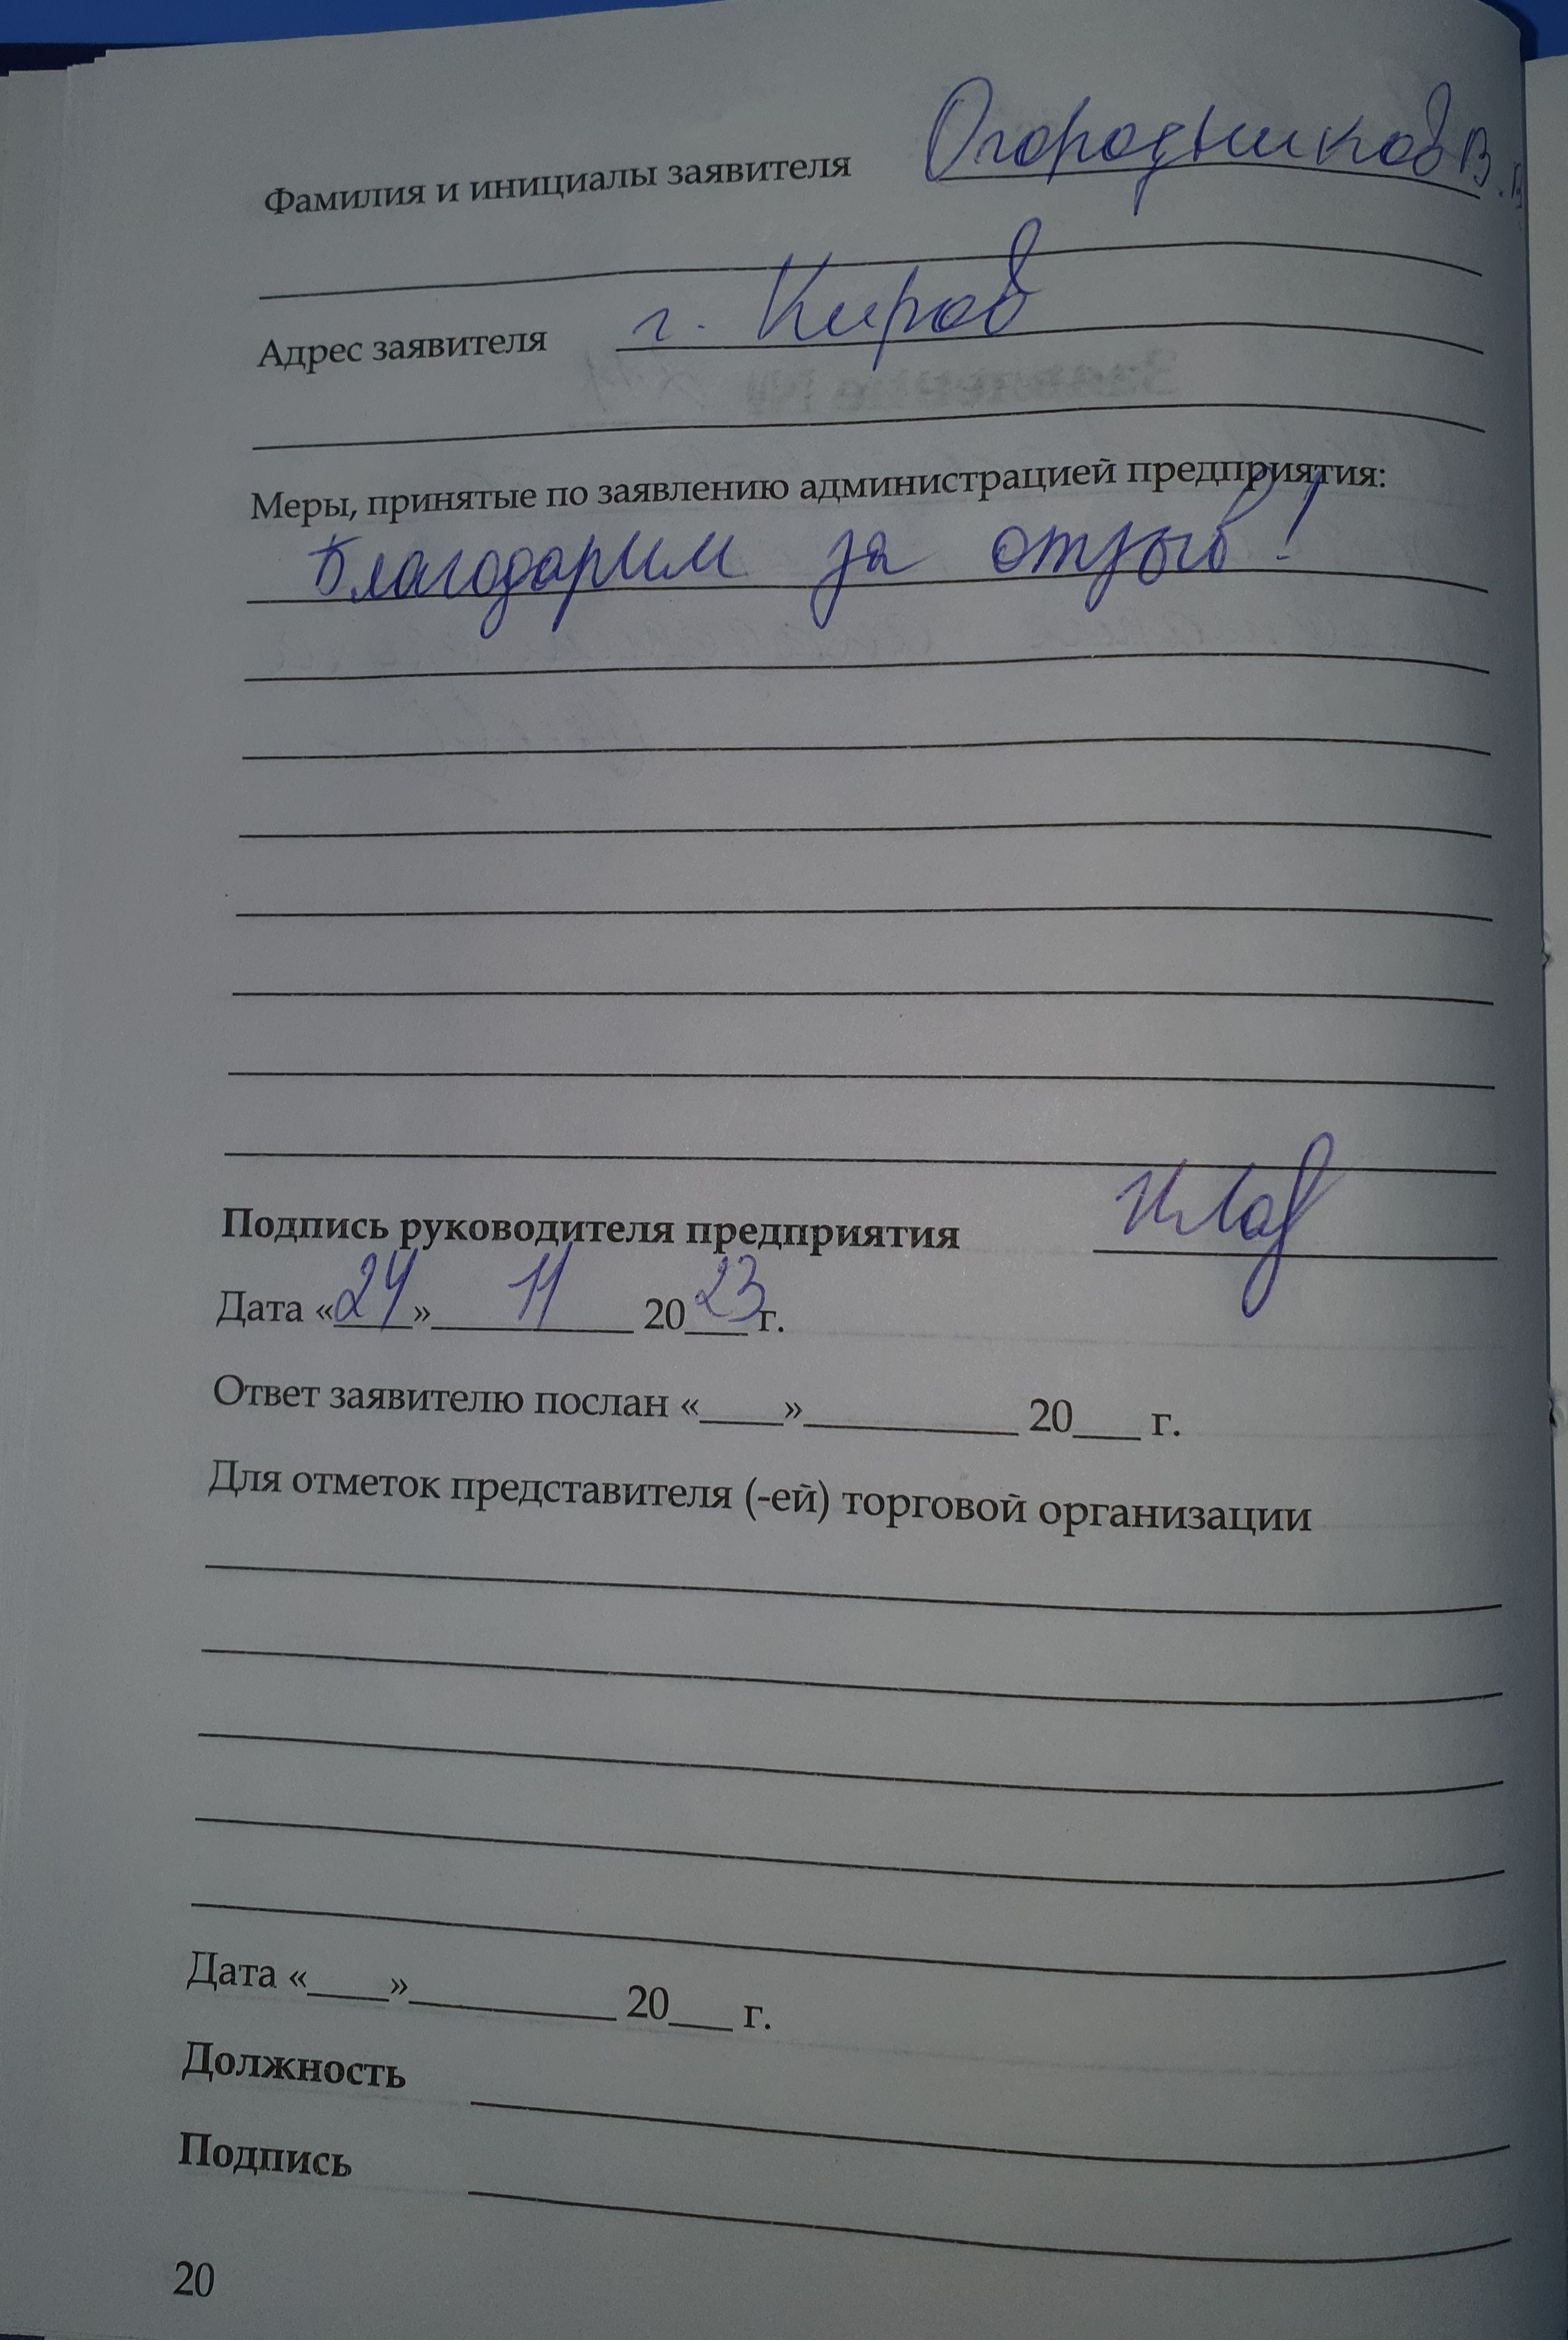 Фамилия и инициалы заявителя Огородников В.В
Адрес заявителя г. Киров
Меры, принятые по заявлению администрацией предприятия:
Благодарим за отзыв!
Подпись руководителя предприятия
Дата «24» 11 2023 г.
Ответ заявителю послан «____»__________ 20___ г.
Для отметок представителя (-ей) торговой организации
Дата «____»__________ 20___ г.
Должность
Подпись
20